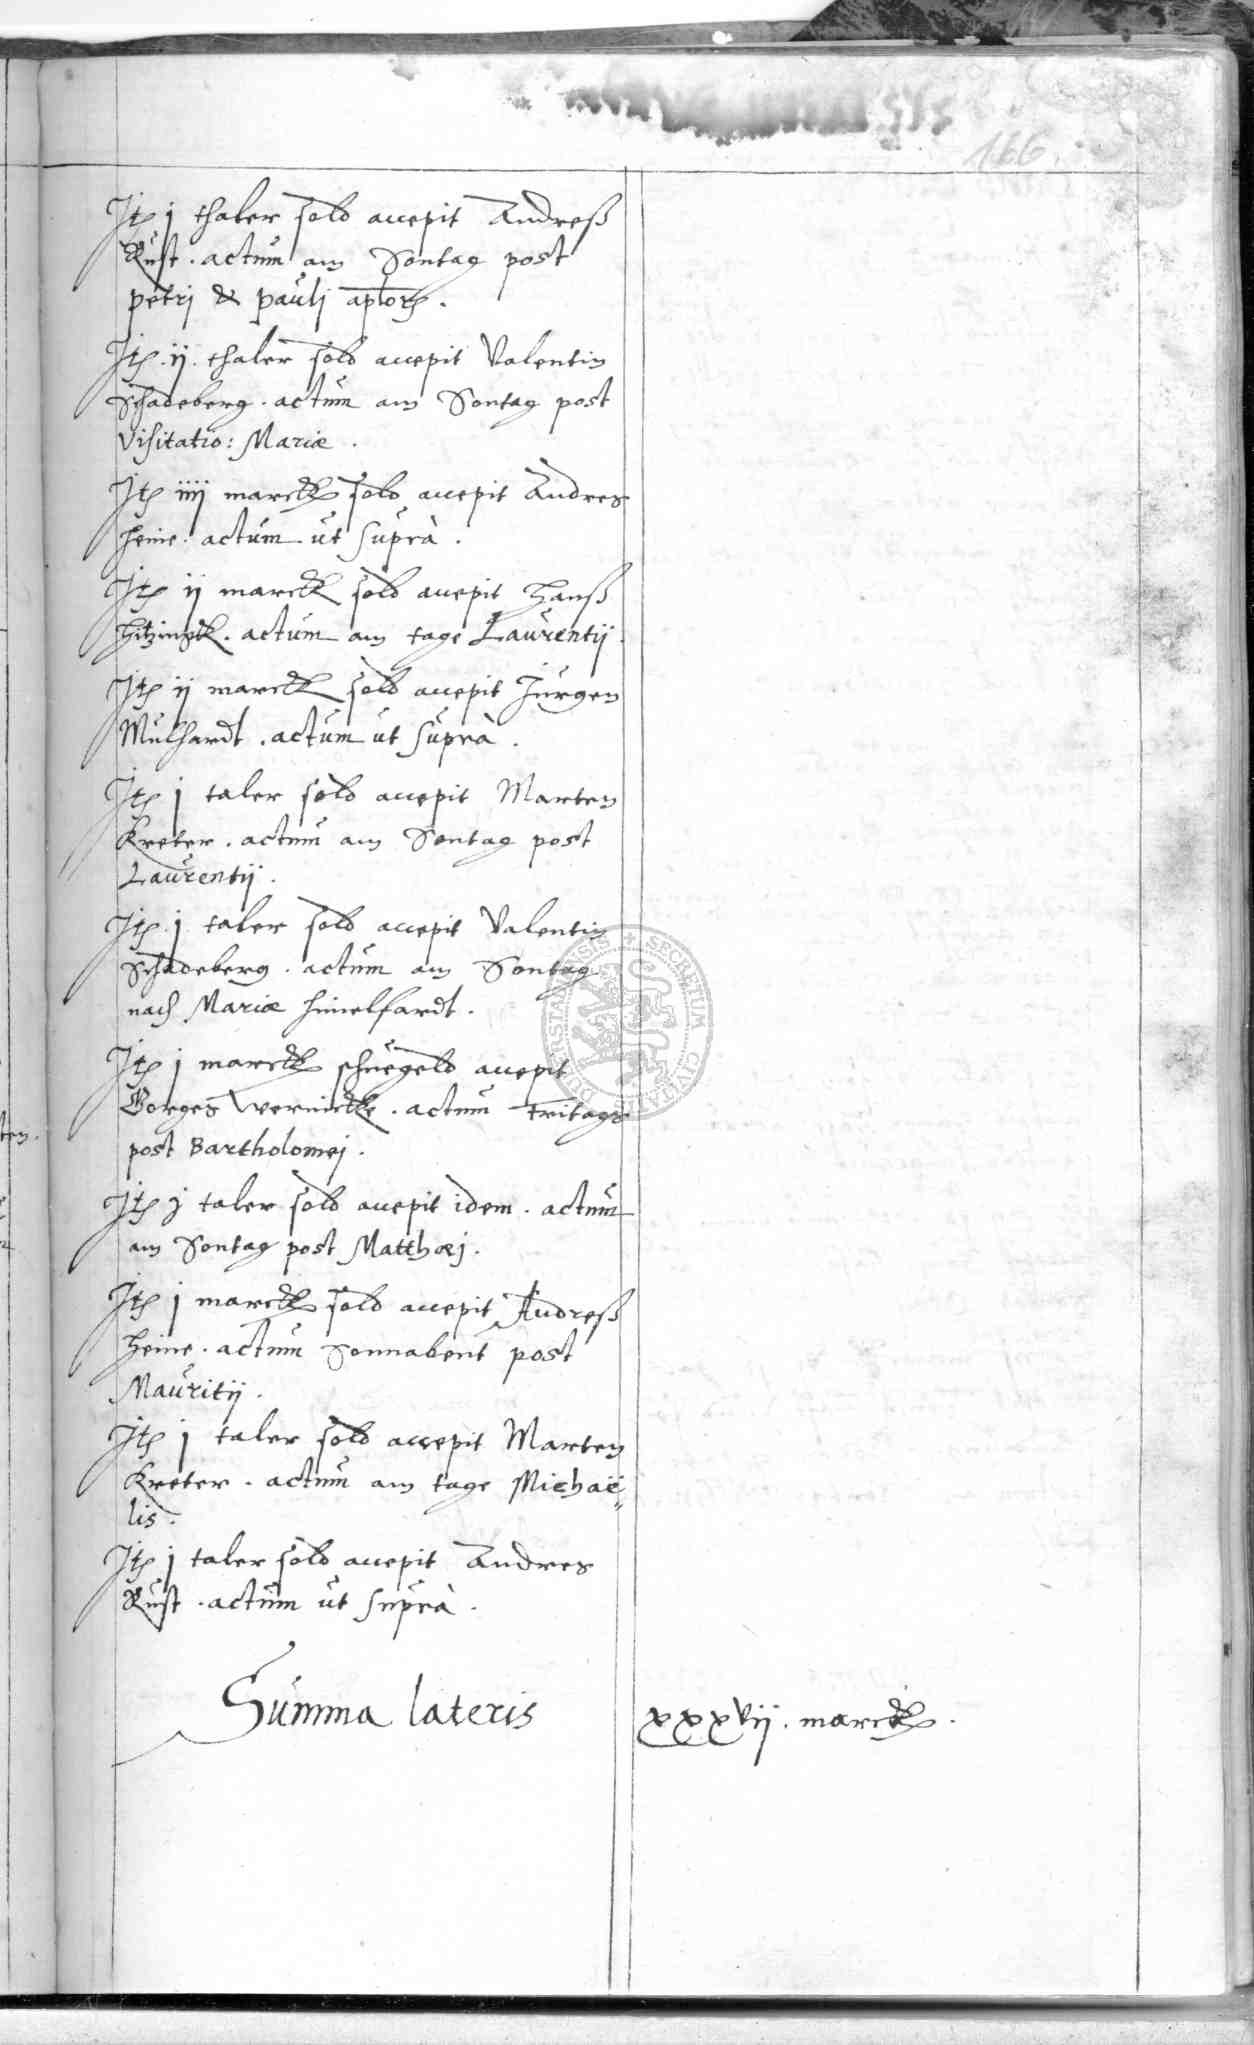 166
Jtē j thaler sold accepit Andreß
Rust . actum am Sontag post
petri & pauli aptorē .
Jtē .ij. thaler sold accepit Valentin
Schadeberg . actum am Sontag post
Visitatio: Mariæ .
Jtē iiij marckē sold accepit Andres
Heine . actum ut suprà .
Jtē ij marck sold accepit Hanß
actum am tage Laurentij .
Jtē ij marck sold accepit Jurgen
Mulhardt . actum ut suprà .
Jtē j taler sold accepit Marten
Kreter . actum am Sontag post
Laurentij .
Jtē .j. taler sold accepit Valentin
Schadeberg . actum am Sontag
nach Mariæ himelfardt .
Jtē j marckē schuegeld accepit
Borges Wernickē . actum Fritags
post Bartholomej .
Jtē j taler sold accepit idem . actum
am Sontag post Matthæj .
Jtē j marckē sold accepit Andreß
Heine . actum Sonnabent post
Mauritij .
Jtē j taler sold accepit Marten
Kreter . actum am tage Michaë„
lis .
Jtē j taler sold accepit Andres
Rust . actum ut suprà .
Summa lateris xxxvij . marckē .
SECRETUM CIVITATIS DUDERSTADENSIS